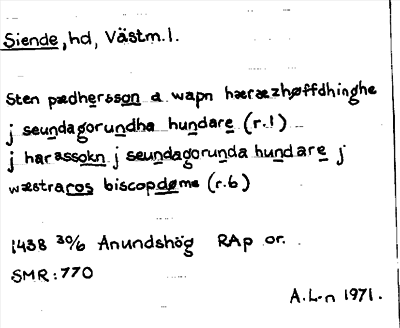 Siende, hd, Västm.l.
Sten pædhersson a wapn hæræzhøffdhinghe
j seundagorundha hundare (r.1)
j harassokn j seundagorunda hundare j
wæstraros biscopdøme (r.6)
1438 30/6 Anundshög RAp or.
SMR: 770
A.L-n 1971.